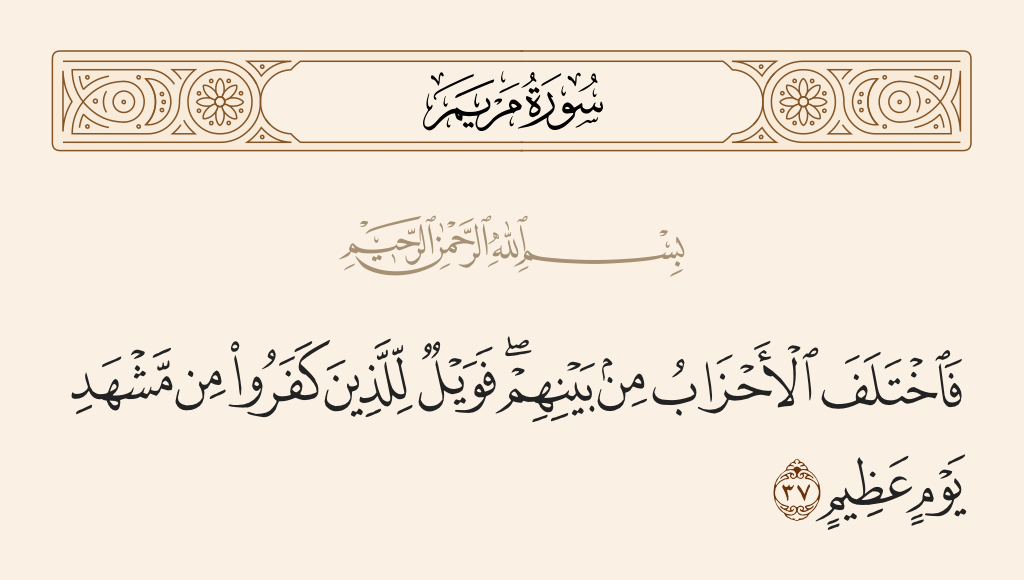 سُورَةُ مَرْيَمَ
بِسْمِ ٱللَّهِ ٱلرَّحْمَٰنِ ٱلرَّحِيمِ
فَٱخْتَلَفَ ٱلْأَحْزَابُ مِنۢ بَيْنِهِمْ ۖ فَوَيْلٌ لِّلَّذِينَ كَفَرُوا۟ مِن مَّشْهَدِ
يَوْمٍ عَظِيمٍ ٣٧